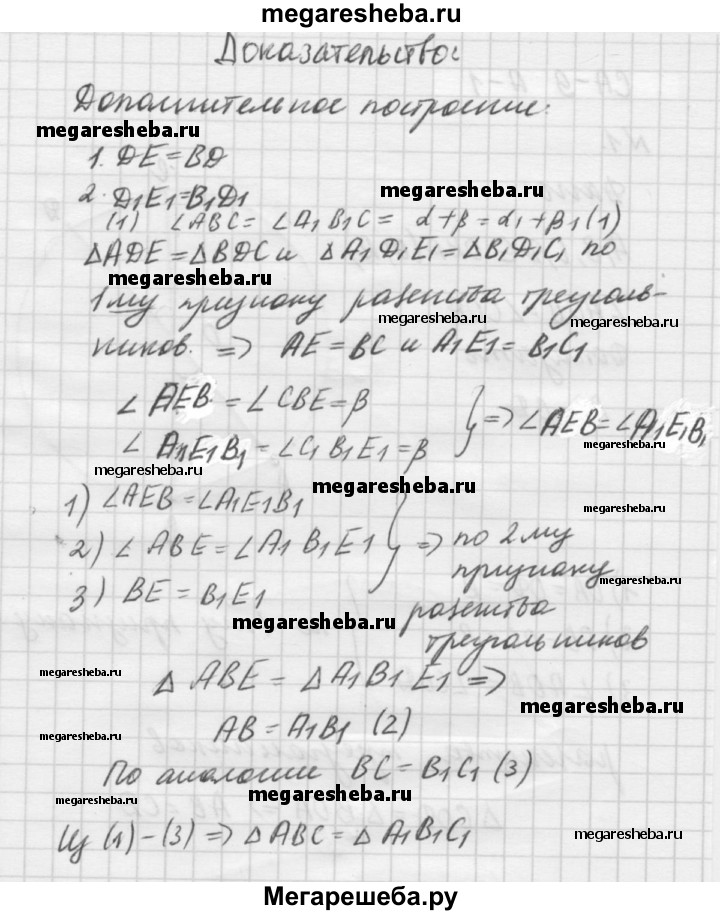 megaresheba.ru
Доказательство:
Дополнительное построение:
megaresheba.ru
1. DE=BD
megaresheba.ru
2. D1E1=B1D1
(1) ∠ABC = ∠A1B1C = α+β = α1+β1 (1)
ΔADE=ΔBDC и ΔA1D1E1=ΔB1D1C1 по
megaresheba.ru
1му признаку равенства треуголь-
megaresheba.ru megaresheba.ru
ников. => AE=BC и A1E1=B1C1
∠AEB = ∠CBE=β
∠A1E1B1=∠C1B1E1=β } => ∠AEB=∠A1E1B1
megaresheba.ru
megaresheba.ru
megaresheba.ru
1) ∠AEB=∠A1E1B1
megaresheba.ru
2) ∠ABE=∠A1B1E1 } => по 2му
признаку
megaresheba.ru
3) BE=B1E1
равенства
megaresheba.ru
треугольников
megaresheba.ru
ΔABE=ΔA1B1E1 =>
megaresheba.ru
AB=A1B1 (2)
megaresheba.ru
По аналогии BC=B1C1 (3)
megaresheba.ru
megaresheba.ru
Из (1)-(3) => ΔABC=ΔA1B1C1
megaresheba.ru
Мегарешеба.ру